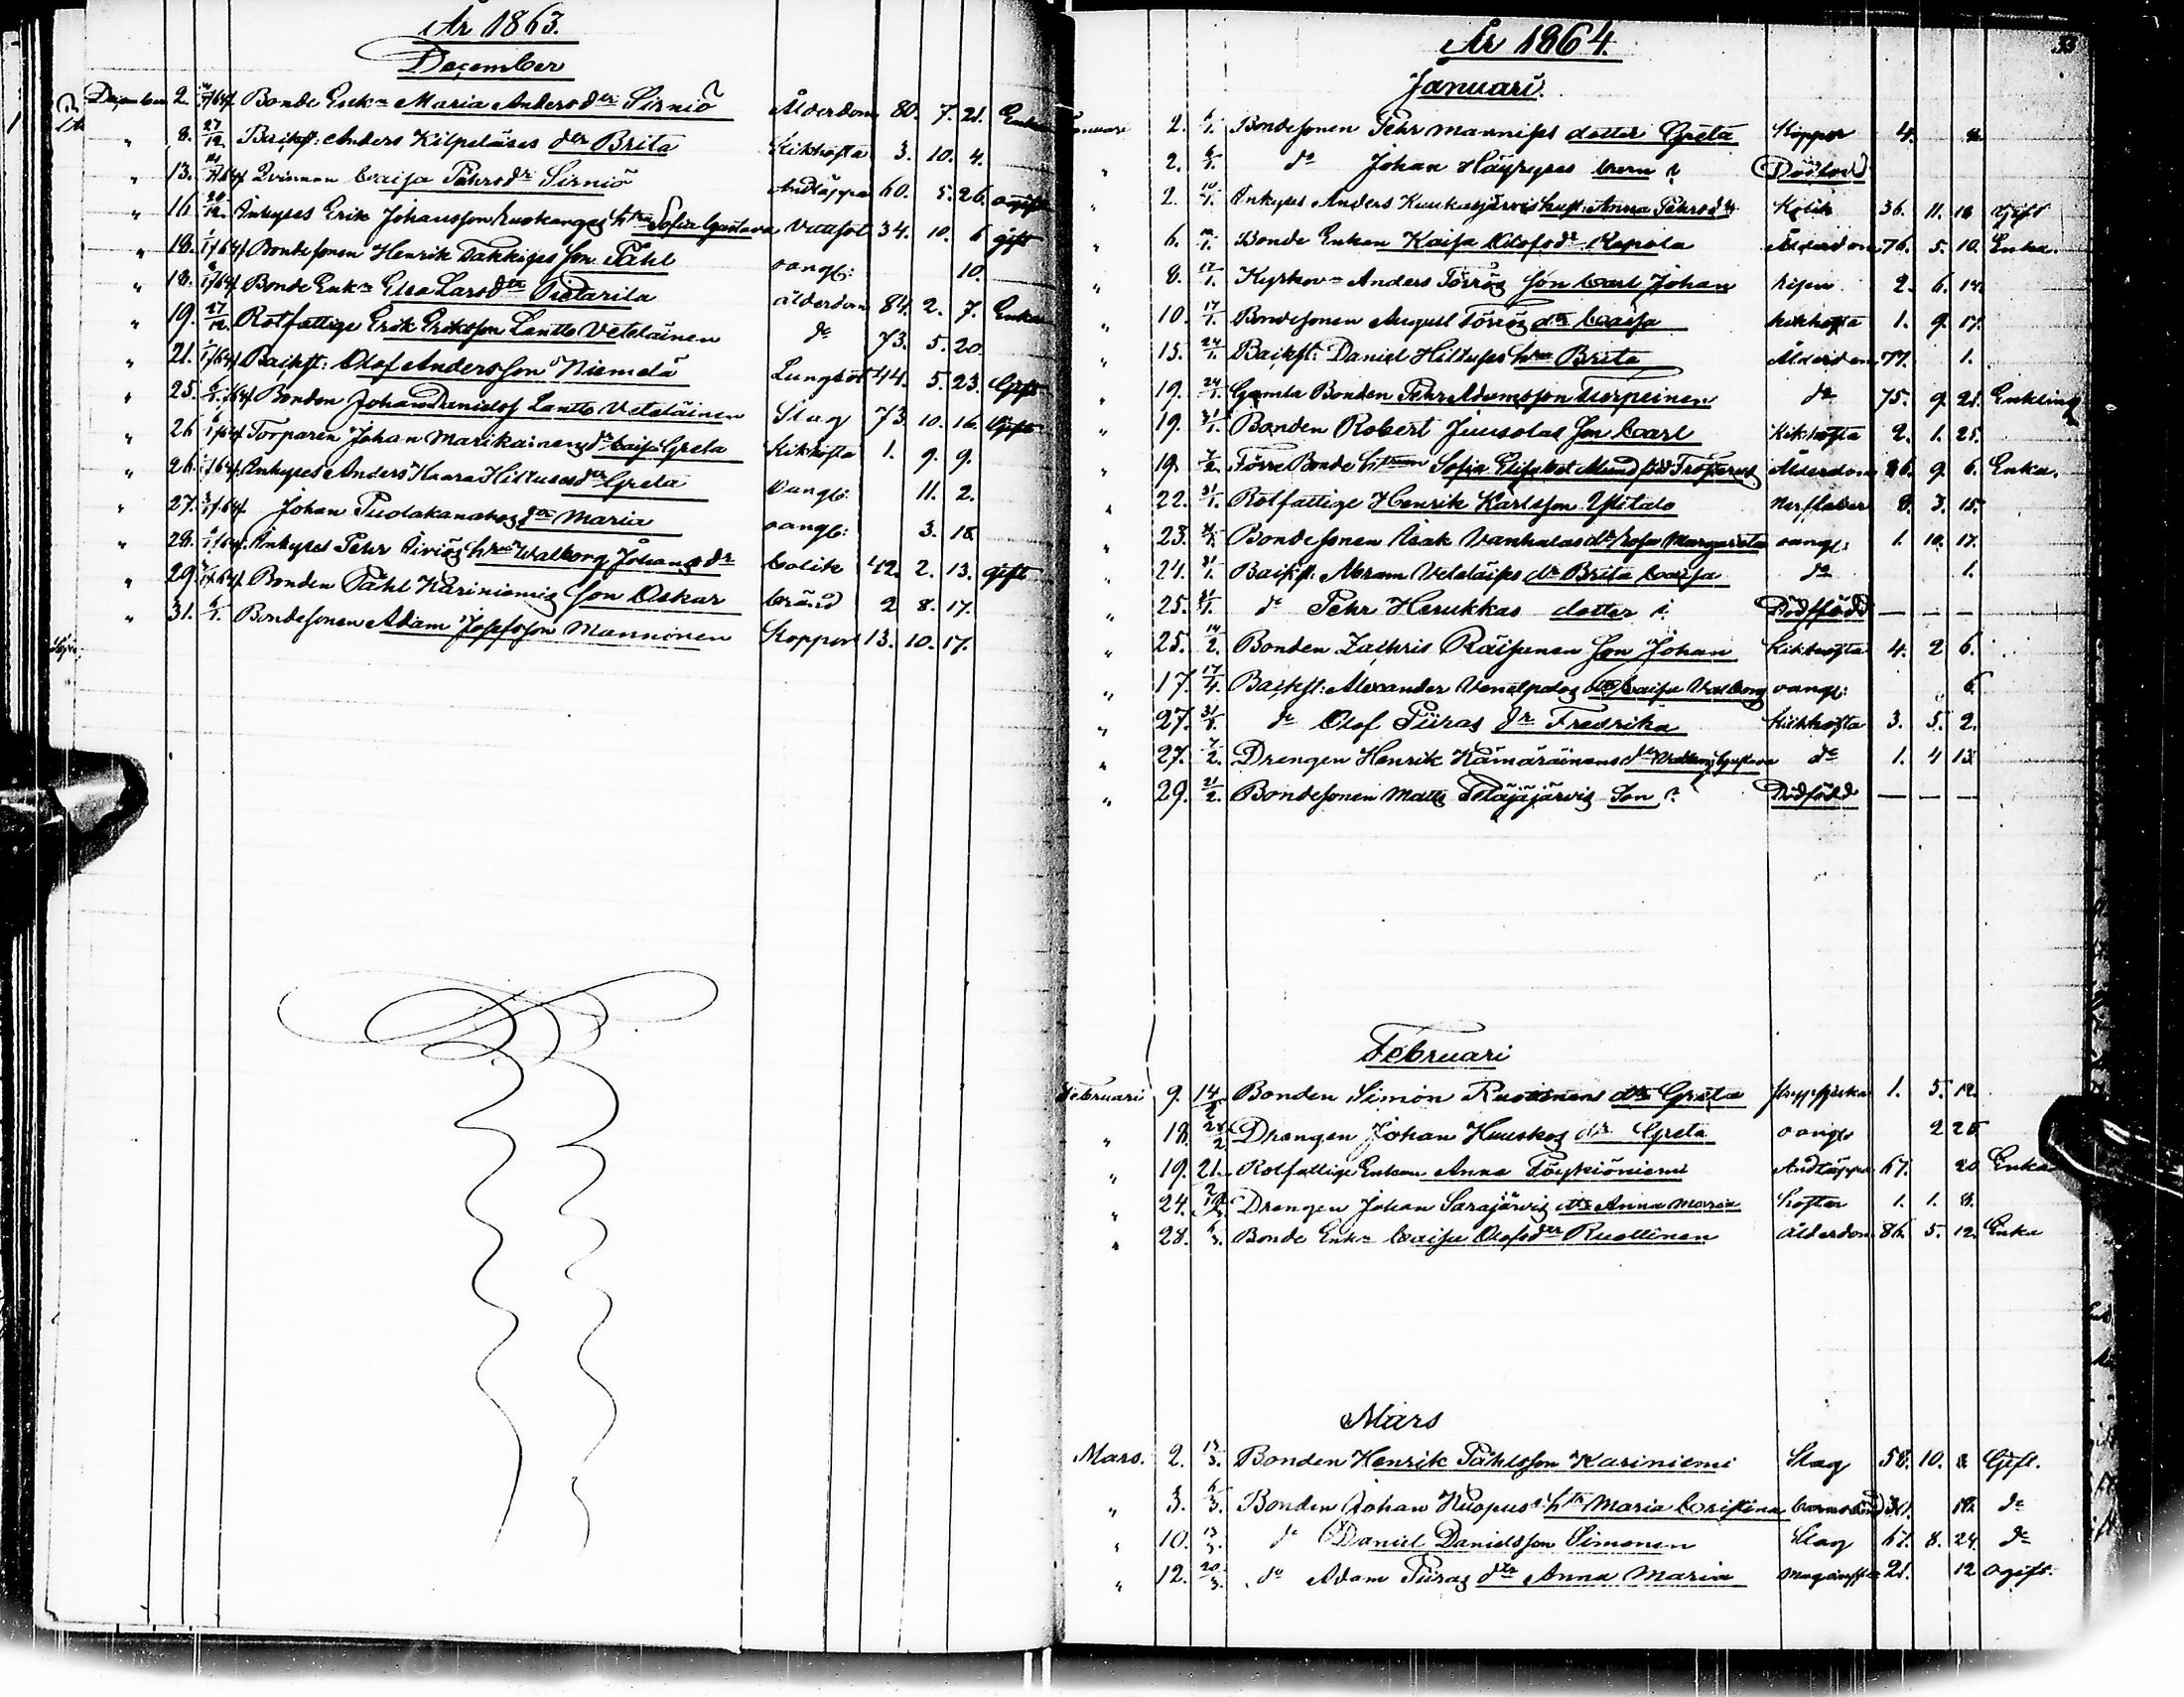 År 1863.
December
December 2. /64 Bonde Enk:n Maria Andersdtr Sirniö Ålderdom 80. 7. 21. Enka
" 8. 27/12. Backst: Anders Kilpeläises dtr Brita Kikhosta 3. 10. 4.
" 13. /64 Qvinnan Caisa Pehrsdr Sirniö Andtäppa 60. 5. 26. ogift
" 16. 20/12. Inhyses Erik Johansson h:tru Sofia Gustava Vattsot 34. 10. 6 gift
" 18. 1/64 Bondesonen Henrik Takkises Son Påhl oangf: 10.
" 18. 1/64 Bonde Enk:n Elsa Larsdtr Pietarila ålderdom 84. 2. 7. Enka
" 19. 27/12. Rotfattige Erik Eriksson Lantto Veteläinen do 73. 5. 20.
" 21. 1/64 Backst: Olof Andersson Niemelä Lungsot 44. 5. 23. Gift
" 25. 6/1. /64 Bonden Johan Danielss Lantto Veteläinen Slag 73. 10. 16. Gift
" 26 1/64 Torparen Johan Marikainens dr Caisa Greta Kikhosta 1. 9. 9.
" 26. 1/64 Inhyses Anders Haara Hiltuses dtr Greta oangf: 11. 2.
" 27. 3/1. 64 Johan Pudakanahos dtr Maria oangf: 3. 18.
" 28. 1/64. Inhyses Pehr hru Walborg Johansdr Colik 42. 2. 13. gift
" 29. 1/64 Bonden Påhl Kariniemis Son Oskar bränd 2 8. 17.
" 31. 6/1. Bondesonen Adam Josefsson Mannonen Koppor 13. 10. 17.
År 1864.
33
Januari.
Januari 2. 6/1. Bondesonen Pehr Mannises dotter Greta Koppor 4.
" 2. 6/1. do Johan Häyryses barn ? Dödfödd
" 2. 10/1. Inhyses Anders Kuukasjärvis hust: Anna Pehrsdr Kolik 36. 11. 18 Gift
" 6. /1. Bonde Enkan Kaisa Olofsdr Repola Ålderdom 76. 5. 10. Enka.
" 8. 17/1. Kyrkov:n Anders Törrös Son Carl Johan 2. 6. 14.
" 10. 17/1. Bondesonen August Törrös dtr Caisa kikhosta 1. 9. 17.
" 15. 24/1. Backst: Daniel Hiltuses hru Brita Ålderdom 77. 1.
" 19. 24/1. Gamla Bonden Pehr Adamsson Turpeinen do 75. 9. 21. Enkling
" 19. 31/1. Bonden Robert Juusolas Son Carl Kikhosta 2. 1. 25.
" 19. 7/2. Förre Bonde Sofia Elisabet född Ålderdom 86. 9. 6. Enka.
" 22. 31/1. Rotfattige Henrik Karlsson Ylitalo Nerffeber 8. 3. 15.
" 23. 31/1. Bondesonen Isak Vanhalas dr Sofia Margareta oangf: 1. 10. 17.
" 24. 31/1. Backst: Abram Veteläises dr Brita Caisa do 1.
" 25. 31/1. do Pehr Herukkas dotter ? Dödfödd — — —
" 25. 14/2. Bonden Zachris Räisänen Son Johan Kikhosta 4. 2 6.
" 17. 17/4. Backst: Alexander Venelpalos dtr Caisa Walborg oangf: 6.
" 27. 31/1. do Olof Piiras dr Fredrika Kikhosta 3. 5. 2.
" 27. 7/2. Drengen Henrik Kämäräinens dtr Walborg Gustava do 1. 4 13.
" 29. 21/2. Bondesonen Matts Pläjäjärvis Son ? Dödfödd — — —
Februari
Februari 9. 14/2 Bonden Simon Ruottinens dtr Greta 1. 5. 12.
" 18. 28/2. Drengen Johan Huuskos dr Greta oangf 2 25
" 19. 21/2. Rotfattige Enkan Anna Töykiöniemi Andtäppa 67. 20 Enka
" 24. Drengen Johan Sarajärvis dtr Anna Maria hosta 1. 1. 8.
" 28. 6/3. Bonde Enk:n Caisa Olofsdtr Ruottinen Ålderdom 86. 5. 12. Enka
Mars
Mars. 2. 13/3. Bonden Henrik Påhlsson Kariniemi Slag 58. 10. 2 Gift.
" 3. 6/3. Bonden Johan Kuopus htr Maria Cristina barnsbörd 30. 18. do
" 10. 13/3. do Daniel Danielsson Simonen Slag 67. 8. 24. do
" 12. 20/3. do Adam Piiras dtr Anna Maria 21. 12 ogift.